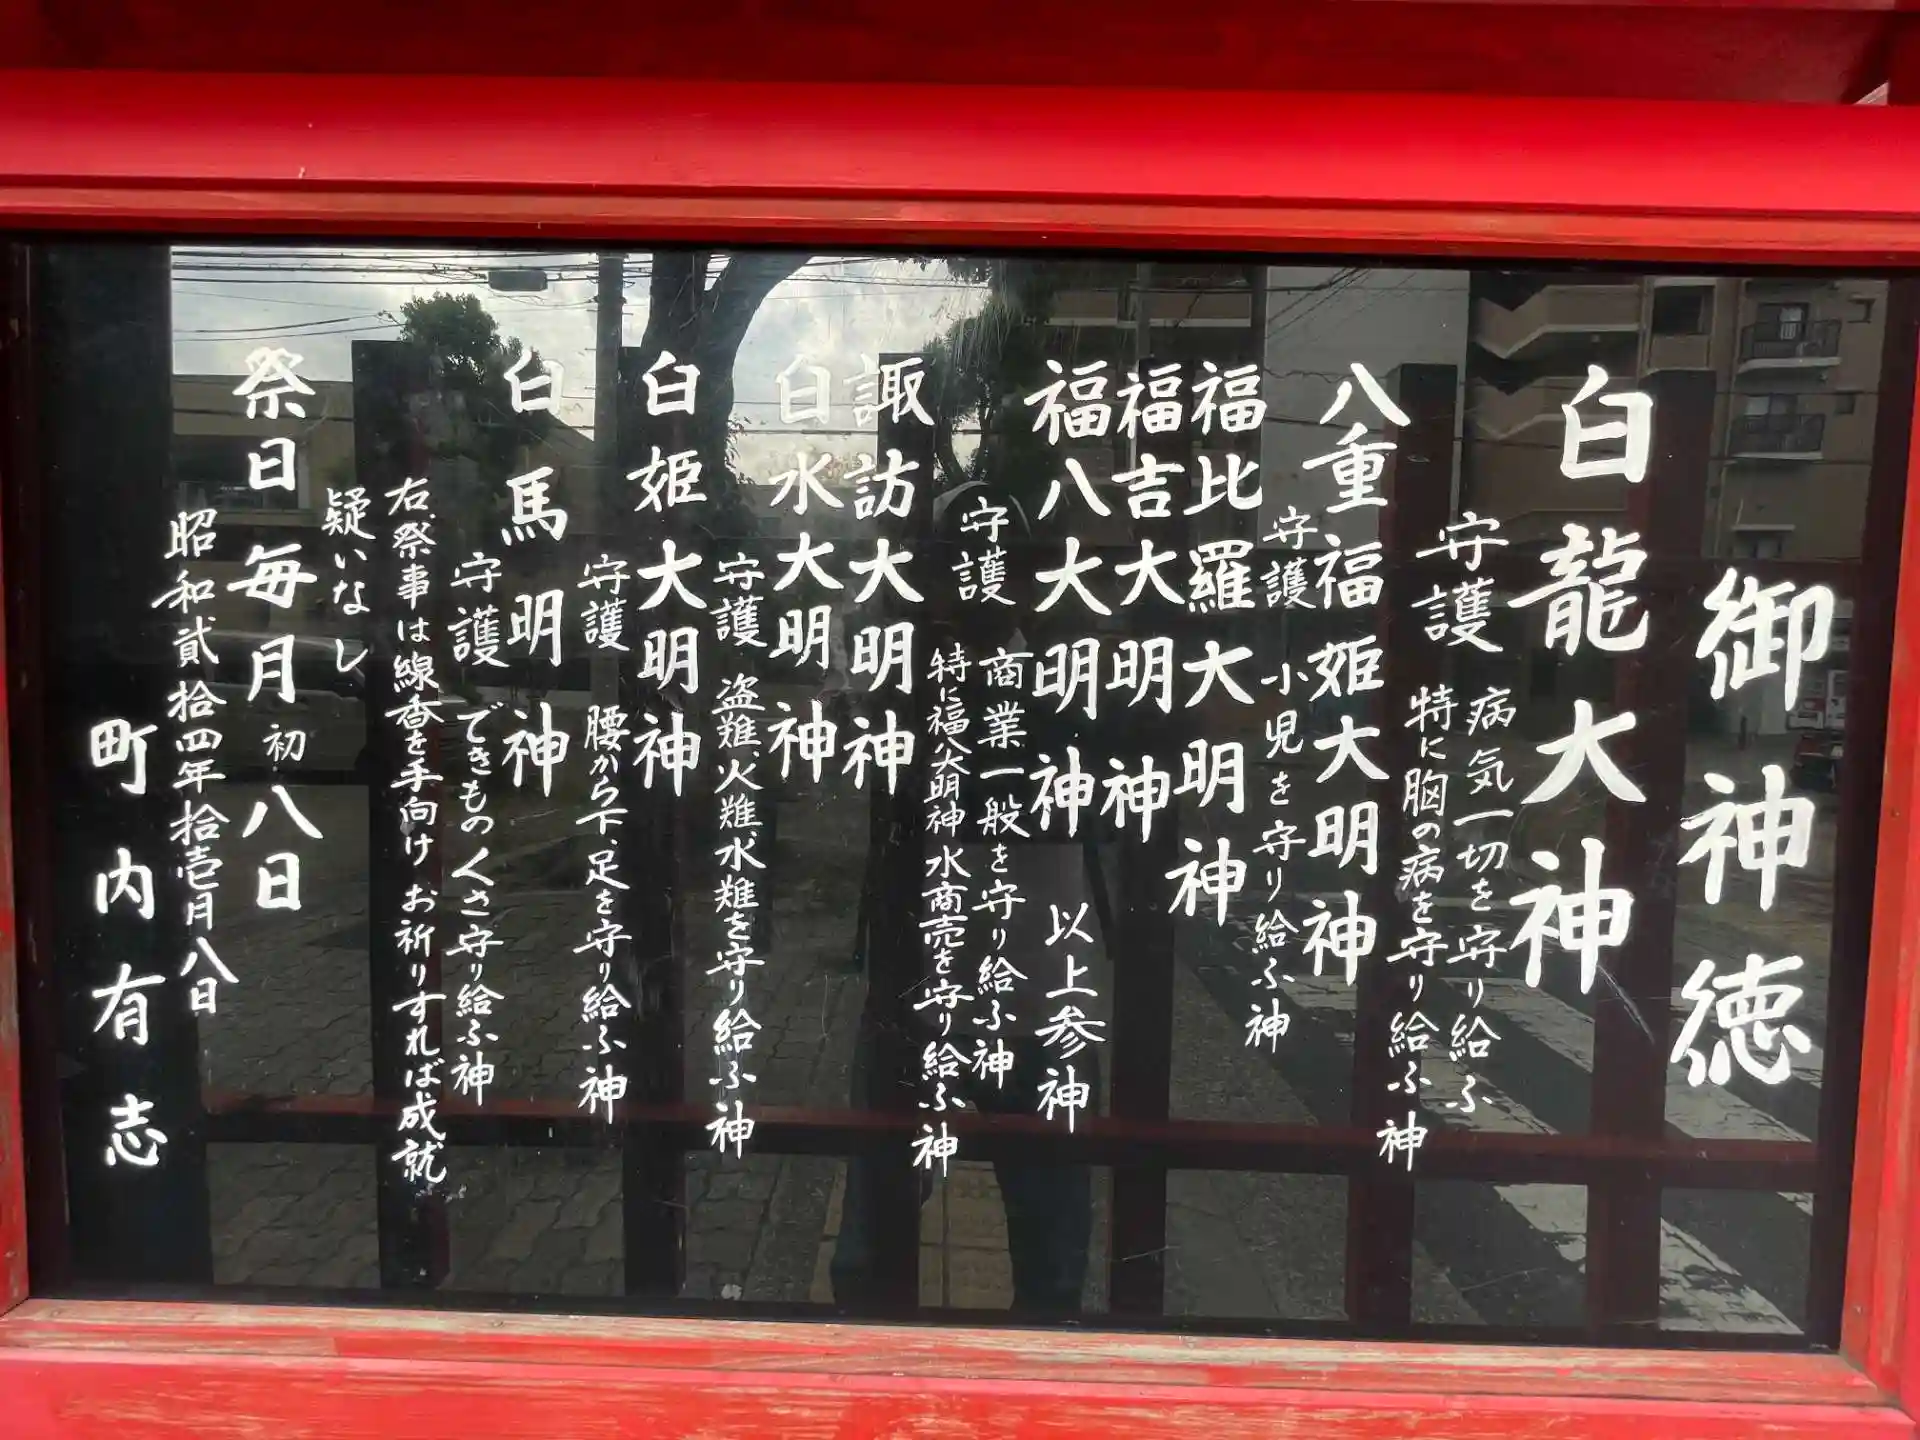 御神徳
白龍大神
守護 病気一切を守り給ふ
特に胸の病を守り給ふ神
八重福姫大明神
守護 小児を守り給ふ神
福比羅大明神
福吉大明神
福八大明神 以上参神
守護 商業一般を守り給ふ神
特に福八大明神水商売を守り給ふ神
諏訪大明神
白水大明神
守護 盗難、火難、水難を守り給ふ神
白姫大明神
守護 腰から下、足を守り給ふ神
白馬明神
守護 できものくさ守り給ふ神
右、祭事は線香を手向けお祈りすれば成就
疑いなし
祭日毎月初八日
昭和貳拾四年拾壱月八日
町内有志